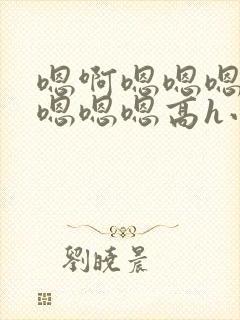 嗯啊嗯嗯嗯
嗯嗯嗯高h.
劉曉晨